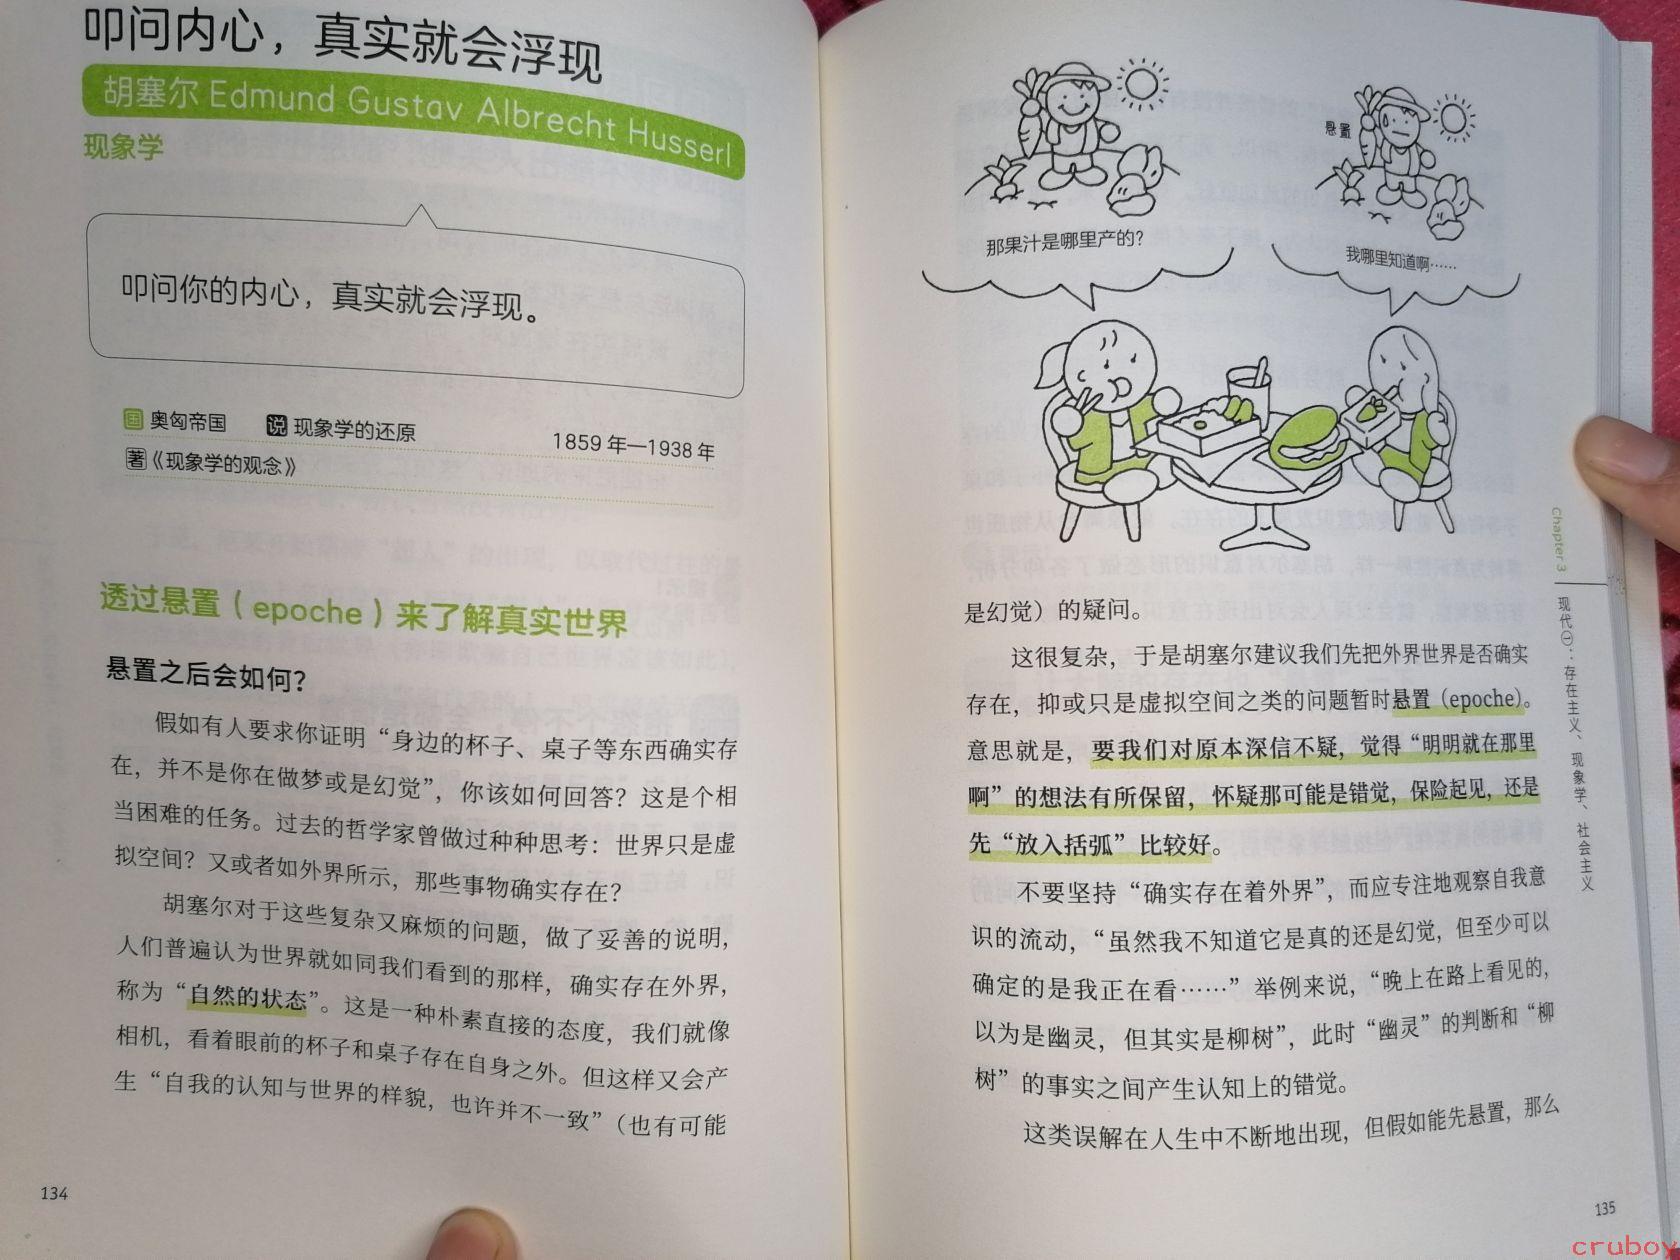 叩问内心，真实就会浮现
胡塞尔 Edmund Gustav Albrecht Husserl
现象学
叩问你的内心，真实就会浮现。
国 奥匈帝国 说 现象学的还原 1859 年—1938 年
著《现象学的观念》
透过悬置（epoche）来了解真实世界
悬置之后会如何？
假如有人要求你证明“身边的杯子、桌子等东西确实存
在，并不是你在做梦或是幻觉”，你该如何回答？这是个相
当困难的任务。过去的哲学家曾做过种种思考：世界只是虚
拟空间？又或者如外界所示，那些事物确实存在？
胡塞尔对于这些复杂又麻烦的问题，做了妥善的说明，
人们普遍认为世界就如同我们看到的那样，确实存在外界，
称为“自然的状态”。这是一种朴素直接的态度，我们就像
相机，看着眼前的杯子和桌子存在自身之外。但这样又会产
生“自我的认知与世界的样貌，也许并不一致”（也有可能
134
悬置
那果汁是哪里产的？
我哪里知道啊……
是幻觉）的疑问。
这很复杂，于是胡塞尔建议我们先把外界世界是否确实
存在，抑或只是虚拟空间之类的问题暂时悬置（epoche）。
意思就是，要我们对原本深信不疑，觉得“明明就在那里
啊”的想法有所保留，怀疑那可能是错觉，保险起见，还是
先“放入括弧”比较好。
不要坚持“确实存在着外界”，而应专注地观察自我意
识的流动，“虽然我不知道它是真的还是幻觉，但至少可以
确定的是我正在看……”举例来说，“晚上在路上看见的，
以为是幽灵，但其实是柳树”，此时“幽灵”的判断和“柳
树”的事实之间产生认知上的错觉。
这类误解在人生中不断地出现，但假如能先悬置，那么
Chapter 3
现代㊀：存在主义、现象学、社会主义
135
cruboy